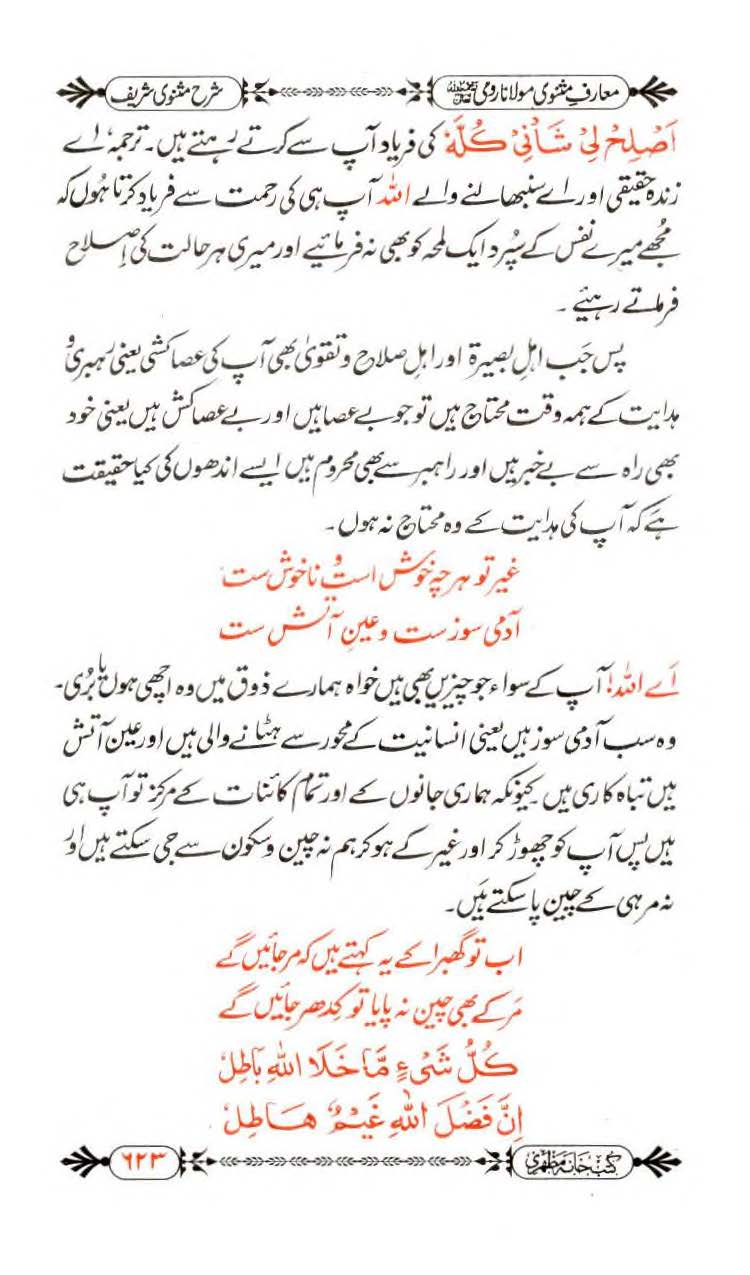 معارفِ مثنوی مولانا رومی
شرح مثنوی شریف
اَصْلِحْ لِیْ شَاْنِیْ کُلَّهٗ کی فریاد آپ سے کرتے رہتے ہیں۔ ترجمہ؛ اے
زندہ حقیقی اور اے سنبھالنے والے اللہ آپ ہی کی رحمت سے فریاد کرتا ہُوں کہ
مُجھے میرے نفس کے سپُرد ایک لمحہ کو بھی نہ فرمائیے اور میری ہر حالت کی اِصلاح
فرماتے رہیئے۔
پس جب اہلِ بصیرۃ اور اہلِ صلاح و تقویٰ بھی آپ کی عصاکشی یعنی رہبری و
ہدایت کے ہمہ وقت محتاج ہیں تو جو بے عصا ہیں اور بے عصاکش ہیں یعنی خود
بھی راہ سے بے خبر ہیں اور راہبر سے بھی محروم ہیں ایسے اندھوں کی کیا حقیقت
ہَے کہ آپ کی ہدایت کے وہ محتاج نہ ہوں۔
غیر تو ہر چہ خوش است و ناخوش ست
آدمی سوز ست و عینِ آتش ست
اَے اللہ! آپ کے سواء جو چیزیں بھی ہیں خواہ ہمارے ذوق میں وہ اچھی ہوں یا بُری۔
وہ سب آدمی سوز ہیں یعنی انسانیت کے محور سے ہٹانے والی ہیں اور عین آتش
ہیں تباہ کاری میں کیونکہ ہماری جانوں کے اور تمام کائنات کے مرکز تو آپ ہی
ہیں پس آپ کو چھوڑ کر اور غیر کے ہو کر ہم نہ چین و سکون سے جی سکتے ہیں اور
نہ مر ہی کے چین پا سکتے ہَیں۔
اب تو گھبرا کے یہ کہتے ہیں کہ مر جائیں گے
مَر کے بھی چین نہ پایا تو کِدھر جائیں گے
کُلُّ شَیْءٍ مَّا خَلَا اللهِ بَاطِلٌ
اِنَّ فَضْلَ اللهِ غَیْمٌ هَاطِلٌ
کتب خانہ مظہری
۶۲۳